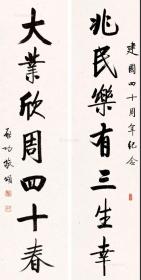 建國四十周年紀念
兆民樂有三生幸
大業欣周四十春
啟功敬頌